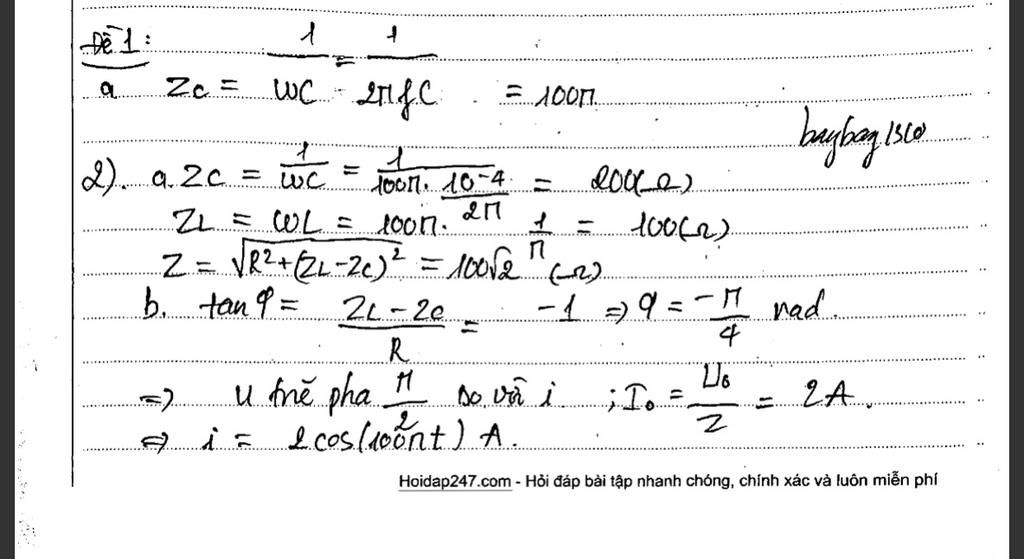 Đề 1:
a Zc = 1/ωC = 1/2πfC = 100π
baybay1310
2). a. Zc = 1/ωC = 1/(100π. 10^-4/2π) = 200(Ω)
ZL = ωL = 100π. 1/π = 100(Ω)
Z = √R²+(ZL-Zc)² = 100√2 (Ω)
b. tan φ = (ZL - Zc)/R = -1 => φ = -π/4 rad.
=> u trễ pha π/2 so với i ; I₀ = U₀/Z = 2A.
=> i = 2cos(100πt) A.
Hoidap247.com - Hỏi đáp bài tập nhanh chóng, chính xác và luôn miễn phí